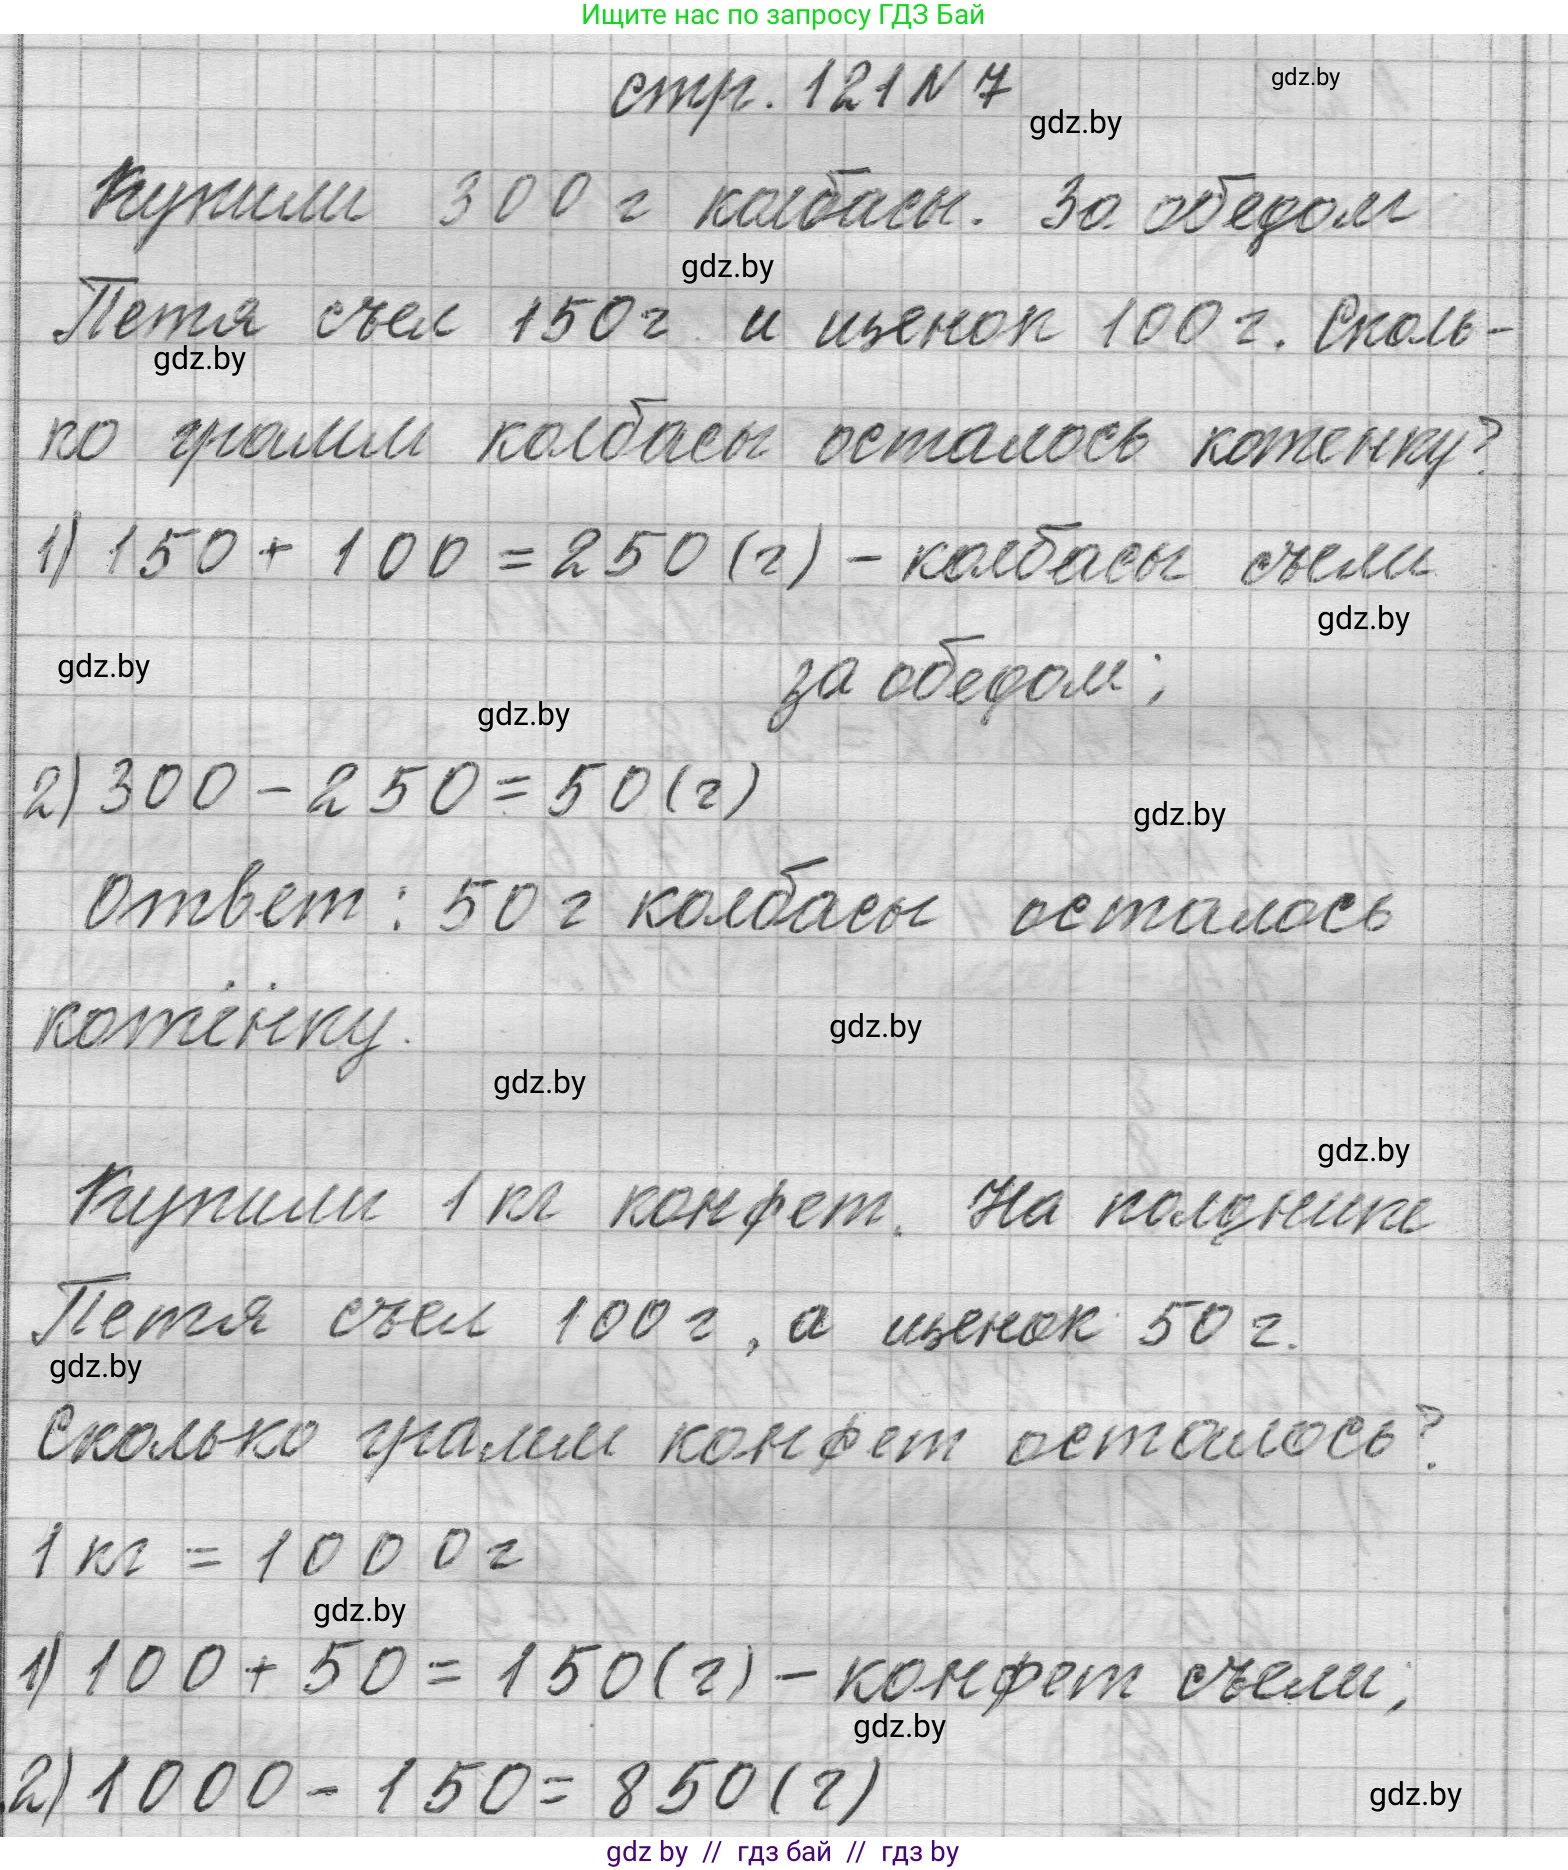 Ищите нас по запросу ГДЗ Бай
стр. 121 N 7
gdz.by
gdz.by
Купили 300 г колбасы. За обедом
gdz.by
Петя съел 150 г и щенок 100 г. Сколь-
gdz.by
ко грамм колбасы осталось котенку?
1) 150 + 100 = 250 (г) - колбасы съели
gdz.by
за обедом;
gdz.by
gdz.by
2) 300 - 250 = 50 (г)
gdz.by
Ответ: 50 г колбасы осталось
котёнку.
gdz.by
gdz.by
gdz.by
Купили 1 кг конфет. На полднике
Петя съел 100 г, а щенок 50 г.
gdz.by
Сколько грамм конфет осталось?
1 кг = 1000 г
gdz.by
1) 100 + 50 = 150 (г) - конфет съели;
gdz.by
2) 1000 - 150 = 850 (г)
gdz.by
gdz by // гдз бай // гдз by